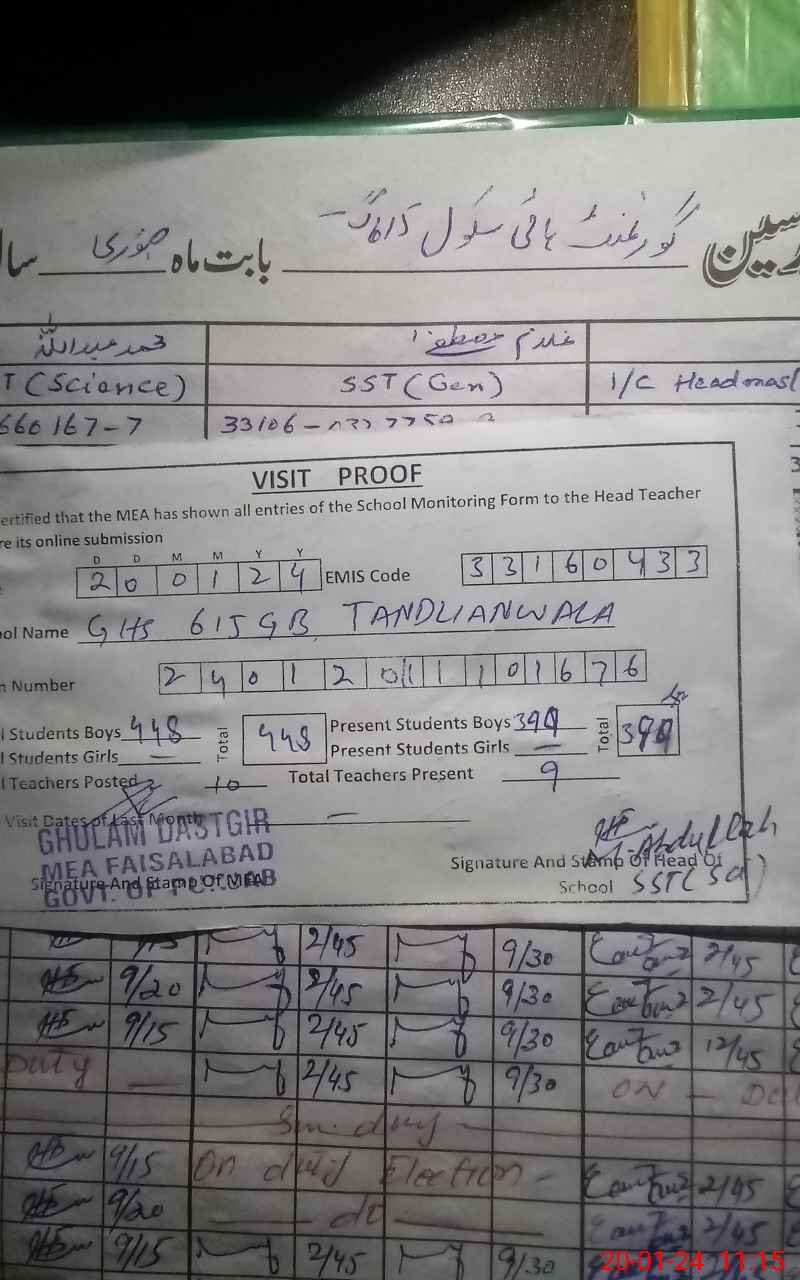 گورنمنٹ ہائی سکول 615 گ ب بابت ماہ جنوری
محمد عبداللہ غلام مصطفٰے
T (Science) SST (Gen) I/C Headmast
660167-7 33106-
VISIT PROOF
ertified that the MEA has shown all entries of the School Monitoring Form to the Head Teacher
re its online submission
D D M M Y Y
2 0 0 1 2 4 EMIS Code 3 3 1 6 0 4 3 3
ol Name GHS 615 GB TANDLIANWALA
n Number 2 4 0 1 2 0 1 1 1 0 1 6 7 6
l Students Boys 448 Total 448 Present Students Boys Total
l Students Girls — Present Students Girls —
l Teachers Posted 10 Total Teachers Present 9
Visit Dates of Last Month —
GHULAM DASTGIR
MEA FAISALABAD
GOVT. OF PUNJAB
Signature And Stamp Of MEA
M. Abdullah
Signature And Stamp Of Head Of
School SST(Sc)
9/15 2/45 9/30 2/45
9/20 2/45 9/30 2/45
9/15 2/45 9/30 12/45
Duty — 2/45 9/30 ON — Du
Sunday
9/15 On duty Election - 2/45
9/20 do 2/45
9/15 2/45 9/30
20-01-24 11:15